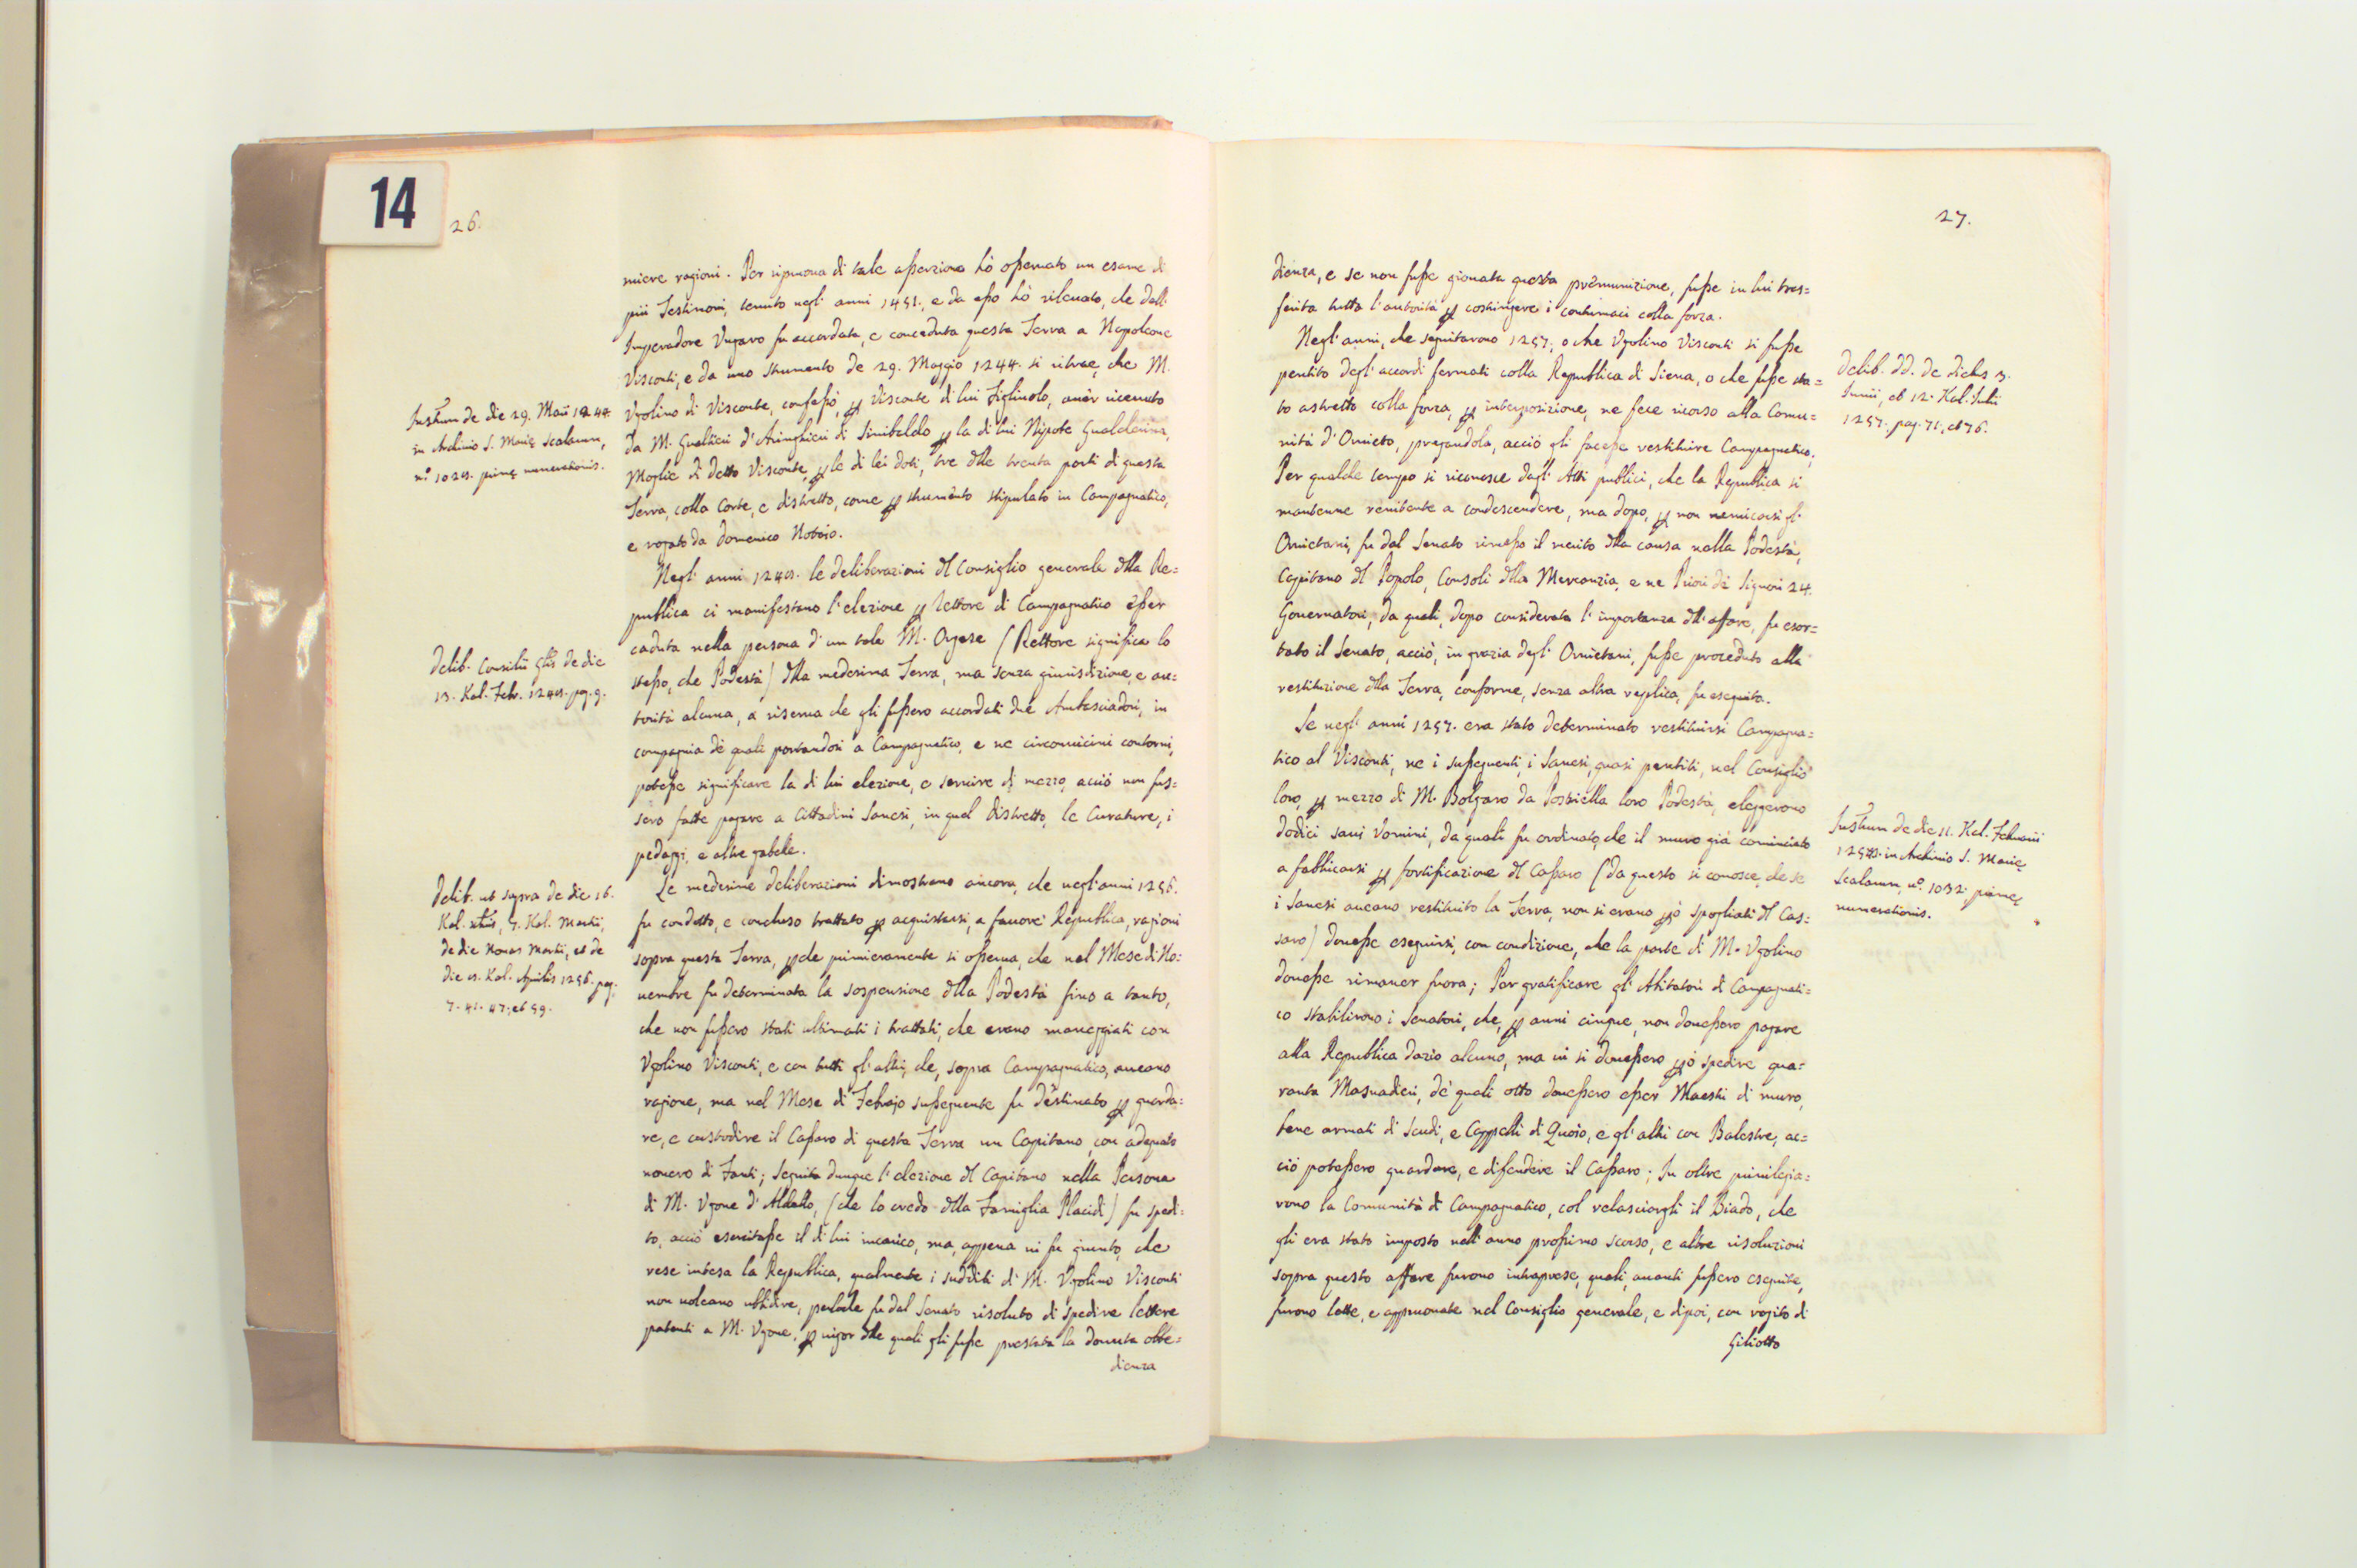 14
26.
miere ragioni. Per riprova di tale asserzione hò osservato un esame di
più Testimoni, tenuto negl' anni 1451., e da esso hò rilevato, che dall'
Imperadore Vngaro fu accordata, e conceduta questa Terra a Napoleone
Visconti, e da uno strumento de 29. Maggio 1244. si ritrae, che M.
Vgolino di Visconte, confessò, p Visconte di lui Figliuolo, aver ricevuto
da M. Gualtieri d' Aringhieri di Sinibaldo p la di lui Nipote Gualdenina,
Moglie di detto Visconte, p le di lei doti, tre dlle trenta parti di questa
Terra, colla Corte, e distretto, come p strumento stipulato in Campagnatico,
e rogato da Domenico Notaio.
Instrum de die 29. Maii 1244.
in Archivio S. Marię Scalarum,
n.° 1025. primę numerationis.
Negl' anni 1245. le deliberazioni dl Consiglio generale dlla Re=
publica ci manifestano l' elezione p Rettore di Campagnatico esser
caduta nella persona d' un tale M. Orgese (Rettore significa lo
stesso, che Podestà) dlla medesima Terra, ma senza giurisdizione, e au=
torità alcuna, a riserva che gli fussero accordati due Ambasciadori, in
compagnia dè quali portandosi a Campagnatico, e ne circonvicini contorni,
potesse significare la di lui elezione, e servire di mezzo, acciò non fus=
sero fatte pagare a Cittadini Sanesi, in quel distretto, le Curature, i
pedaggi, e altre gabelle.
Delib. Consilii Glis de die
13. Kal. Febr. 1245. pag. 9.
Le medesime deliberazioni dimostrano ancora, che negl' anni 1256.
fu condotto, e concluso trattato p acquistarsi, a favore Republica, ragioni
sopra questa Terra, pche primieramente si osserva, che nel Mese di No=
vembre fu determinata la sospensione dlla Podestà fino a tanto,
che non fussero stati ultimati i trattati, che erano maneggiati con
Vgolino Visconti, e con tutti gl' altri, che, sopra Campagnatico, aveano
ragione, ma nel Mese di Febrajo susseguente fu destinato p guarda=
re, e custodire il Cassaro di questa Terra un Capitano, con adequato
novero di Fanti; Seguita dunque l' elezione dl Capitano nella Persona
di M. Vgone d' Aldello, (che lo credo dlla Famiglia Placidi) fu spedi=
to, acciò esercitasse il di lui incarico, ma, appena vi fu giunto, che
rese intesa la Republica, qualmente i sudditi di M. Vgolino Visconti
non voleano ubbidire, perloche fu dal Senato risoluto di spedire lettere
patenti a M. Vgone, p vigor dlle quali gli fusse prestata la dovuta obbe=
dienza
Delib. ut supra de die 16.
Kal. xbris, 7. Kal. Martii,
de die Nonas Martii, et de
die 5. Kal. Aprilis 1256. pag.
7. 41. 47. et 59.
27.
dienza, e se non fusse giovata questa premunizione, fusse in lui tras=
ferita tutta l' autorità p costringere i contumaci colla forza.
Negl' anni, che seguitarono 1257., o che Vgolino Visconti si fusse
pentito degl' accordi fermati colla Republica di Siena, o che fusse sta=
to astretto colla forza, p interposizione, ne fece ricorso alla Comu=
nità d' Orvieto, pregandola, acciò gli facesse restituire Campagnatico;
Per qualche tempo si riconosce dagl' Atti publici, che la Republica si
mantenne renitente a condescendere, ma dopo, p non nemicarsi gl'
Orvietani, fu dal Senato rimesso il merito dlla causa nella Podestà,
Capitano dl Popolo, Consoli dlla Mercanzia, e ne Priori dè Signori 24.
Governatori, da quali, dopo considerata l' importanza dll' affare, fu esor=
tato il Senato, acciò, in grazia degl' Orvietani, fusse proceduto alla
restituzione dlla Terra, conforme, senza altra replica, fu eseguita.
Delib. dd. de diebs 3.
Junii, et 12. Kal. Julii
1257. pag. 71. et 76.
Se negl' anni 1257. era stato determinato restituirsi Campagna=
tico al Visconti, ne i susseguenti, i Sanesi, quasi pentiti, nel Consiglio
loro, p mezzo di M. Bolgaro da Postiella loro Podestà, eleggerono
dodici savi Vomini, da quali fu ordinato, che il muro già cominciato
a fabbricarsi p fortificazione dl Cassaro (da questo si conosce, che se
i Sanesi aveano restituito la Terra, non si erano pò spogliati dl Cas=
saro) dovesse eseguirsi, con condizione, che la parte di M. Vgolino
dovesse rimaner fuora; Per gratificare gl' Abitatori di Campagnati=
co stabilirono i Senatori, che, p anni cinque, non dovessero pagare
alla Republica dazio alcuno, ma vi si dovessero pò spedire qua=
ranta Masnadieri, dè quali otto dovessero esser Maestri di muro,
bene armati di Scudi, e Cappelli di Quoio, e gl' altri con Balestre, ac=
ciò potessero guardare, e difendere il Cassaro; In oltre privilegia=
rono la Comunità di Campagnatico, col relasciargli il Biado, che
gli era stato imposto nell' anno prossimo scorso, e altre risoluzioni
sopra questo affare furono intraprese, quali, avanti fussero eseguite,
furono lette, e approvate nel Consiglio generale, e dipoi, con rogito di
Giliotto
Instrum de die 11. Kal. Februarii
in Archivio S. Marię
Scalarum, n.° 1032. primę
numerationis.